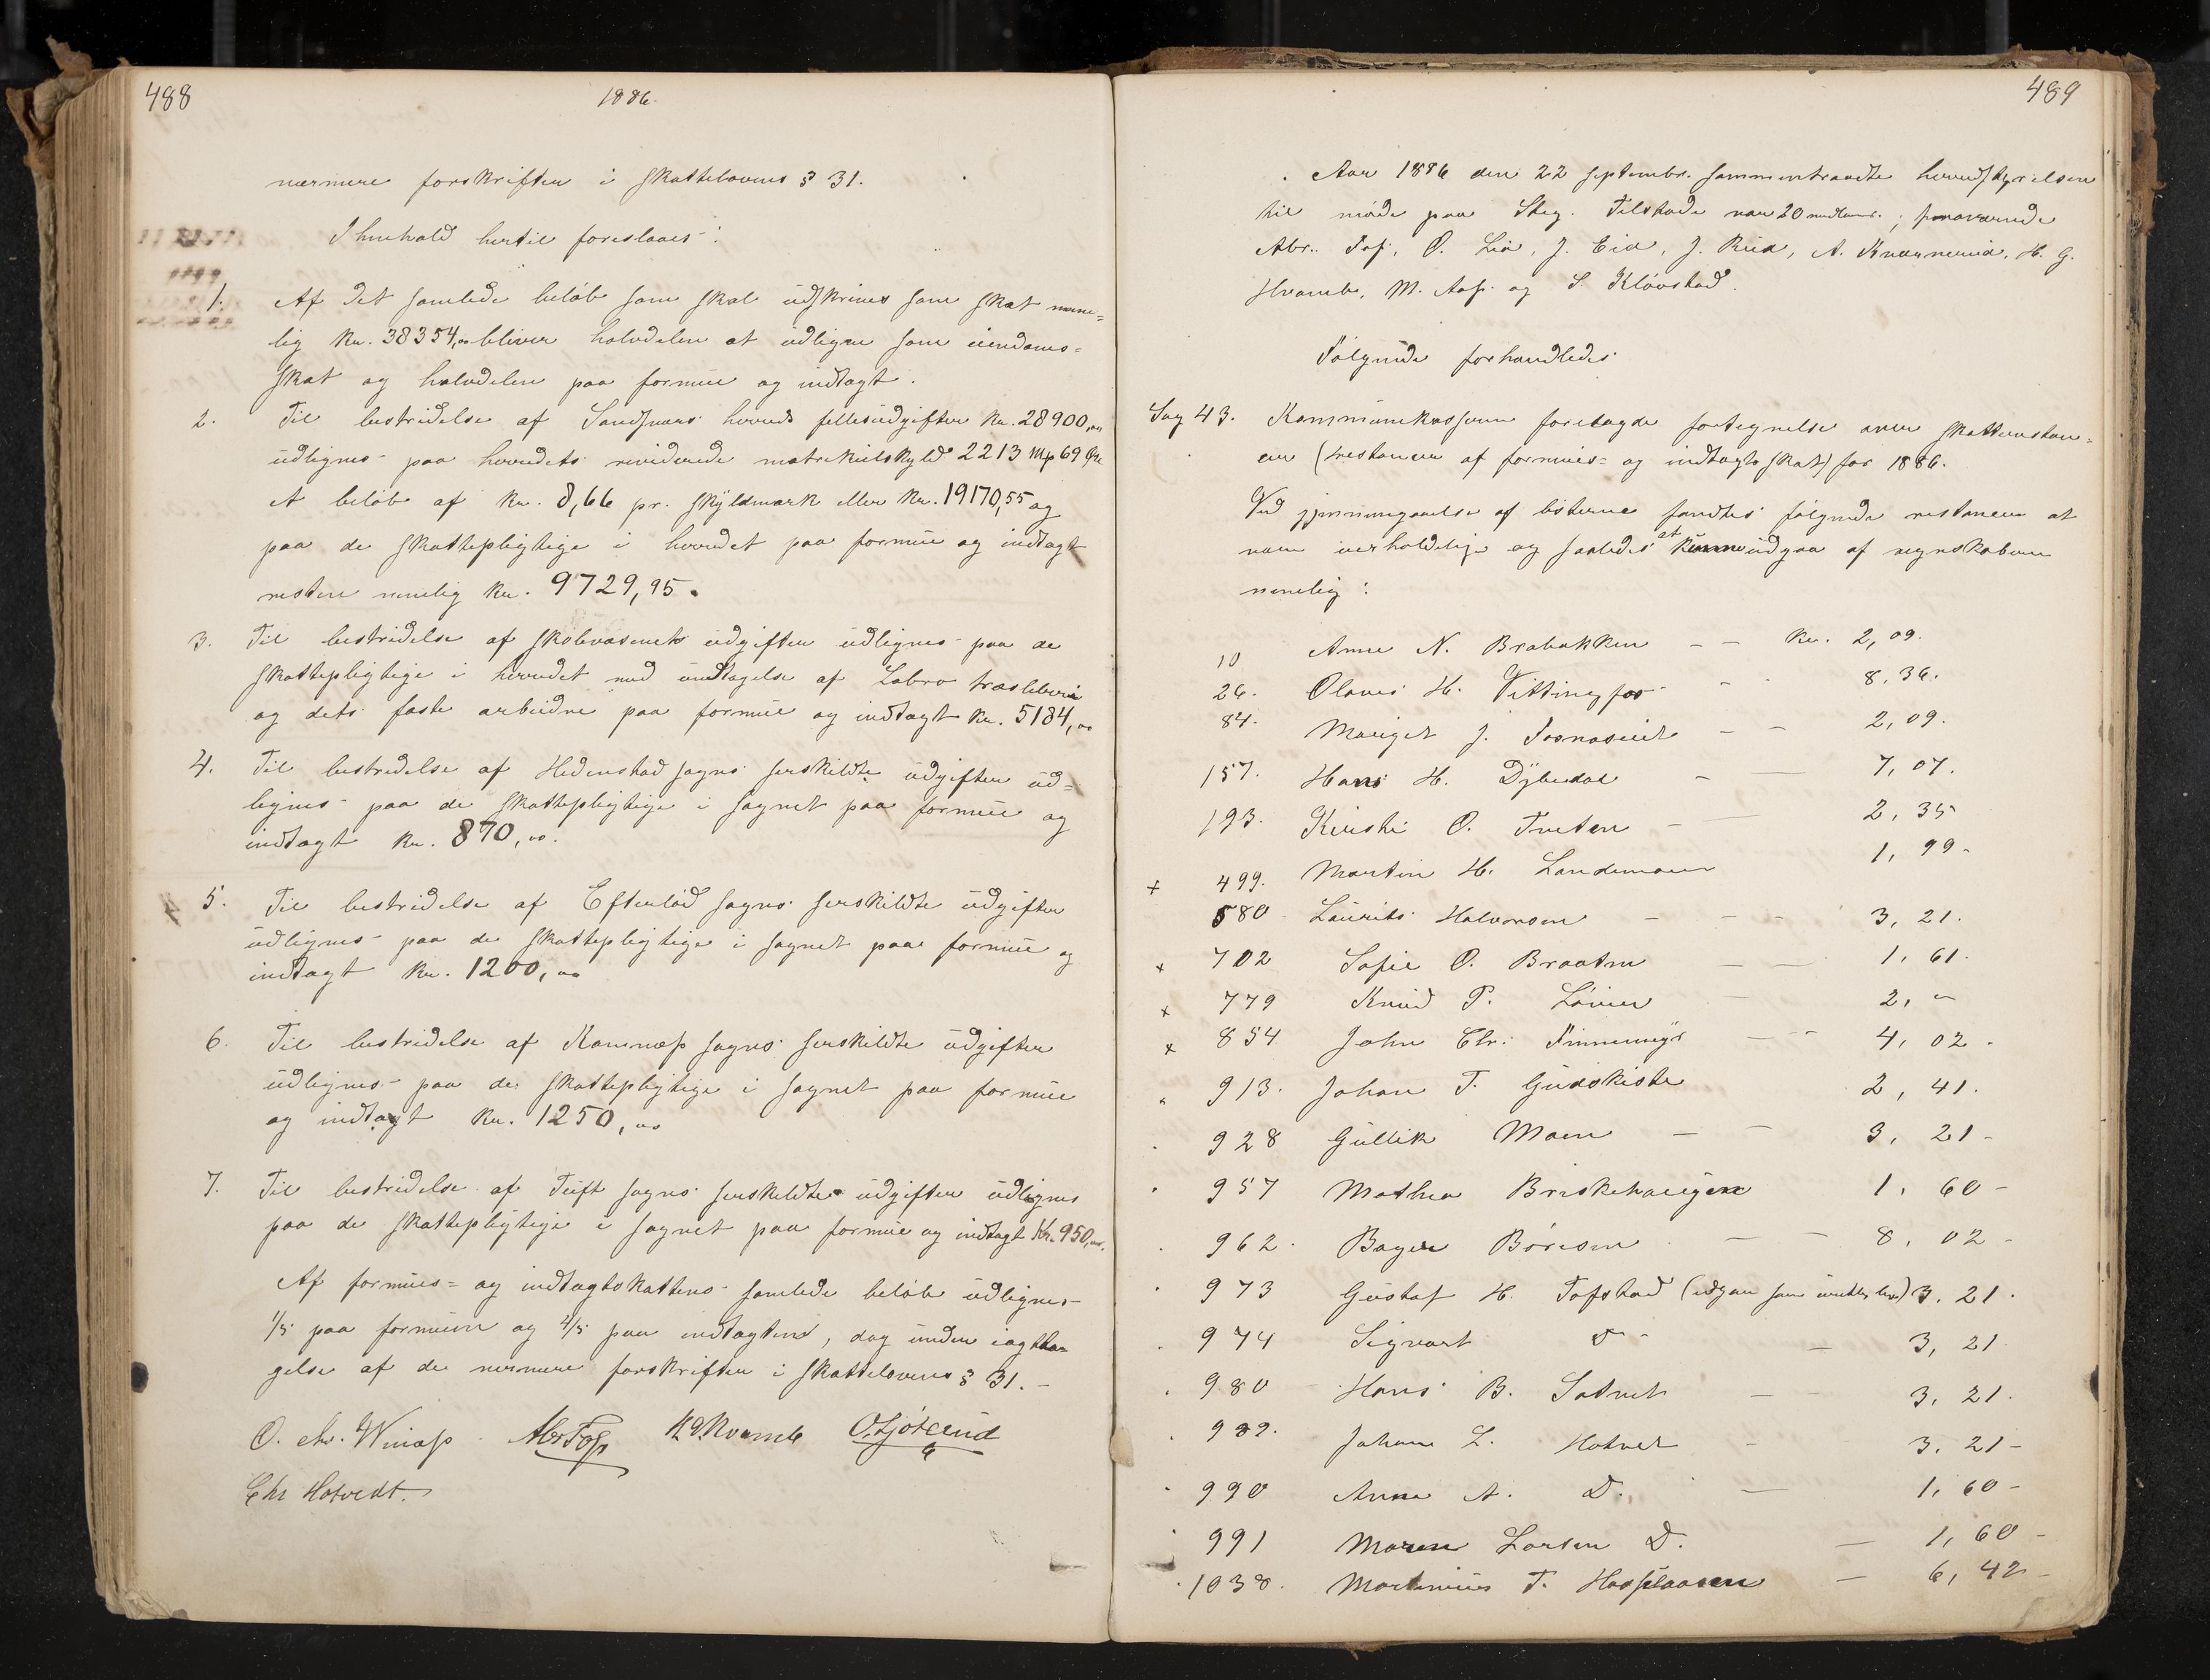 488
1886.
nærmere forskrifter i skattelovens § 31.
I henhold hertil foreslaaes:
1. Af det samlede beløb som skal udskrives som skat neme=
lig Kr. 38354,00 bliver halvdelen at udligne som eiendoms=
skat og halvdelen paa formue og indtægt.
2. Til bestridelse af Sandsværs herreds fellesudgifter Kr. 28900,00
udlignes paa herredets reviderede matrikulskyld 2213 Mk 69 Øre
et beløb af Kr. 8,66 pr. skyldmark eller Kr. 19170,55 og
paa de skattepligtige i herredet paa formue og indtægt
resten nemlig Kr. 9729,95.
3. Til bestridelse af skolevæsenets udgifter udlignes paa de
skattepligtige i herredet med undtagelse af Labro træsliberi
og dets faste arbeidere paa formue og indtægt Kr. 5184,00
4. Til bestridelse af Hedenstad sogns særskildte udgifter ud=
lignes paa de skattepligtige i sognet paa formue og
indtægt Kr. 870,00.
5. Til bestridelse af Eftelød sogns særskildte udgifter
udlignes paa de skattepligtige i sognet paa formue og
indtægt Kr. 1200,00
6. Til bestridelse af Komnæs sogns særskildte udgifter
udlignes paa de skattepligtige i sognet paa formue
og indtægt Kr. 1250,00
7. Til bestridelse af Tuft sogns særskeldte udgifter udlignes
paa de skattepligtige i sognet paa formue og indtægt Kr. 950,00.
Af formues= og indtægtskattens samlede beløb udlignes
1/5 paa formuen og 4/5 paa indtægten, dog under iagtta-
gelse af de nærmere forskrifter i skattelovens § 31.-
O. Chr. Winæss Abr Foss H.G. Kvamb O. Ljøterud
Chr Hotvedt.
489
Aar 1886 den 22 septembr. sammentraadte herredstyrelsen
til møde paa Steg. Tilstede var 20 medlem.; fraværende
Abr. Fos, O. Lia, J. Eid, J. Rud, A. Kværnerud, H. G.
Hvamb, M. Aas og S. Kløvstad.
Følgende forhandledes
Sag 43. Kommunekassereren forelagde fortegnelse over skatterestan=
cer (restancer af formues= og indtægtsskat) for 1886.
Ved gjennemgaaelse af listerne fandtes følgende restancer at
være uerholdelige og saaledes at kunne udgaa af regnskaberne
nemlig:
10 Anne N. Brabakken - - Kr. 2,09.
26. Olaves H. Vittingfos - - 8,36.
84. Margit J. - - 2,09.
157. Hans H. Dybedal - 7,07.
193. Kirsti O. Tveten - 2,35
+ 499. Martin H. Landemoen 1,99-
580 Laurits Halvorsen - - - 3,21.
+ 702 Sofie O. Braaten - - 1,61.
+ 779 Knud P. - 2, -
+ 854 John Chr. - - 4,02.
913. Johan T. Gudskiste 2,41.
928 Gullik Moen - - 3,21-
957 Mathea Briskehaugen 1,60-
962. Børesen - - 8,02-
973 Gustaf H. Tofstad 3,21.
974 Sigvart D - 3,21
980 Hans B. - - 3,21.
989. Johan L. Hotvet - 3,21-
990 Anne A. D. - 1,60-
991 Maren Larsen D. - 1,60-
1038. Martinius T. - 6,42-